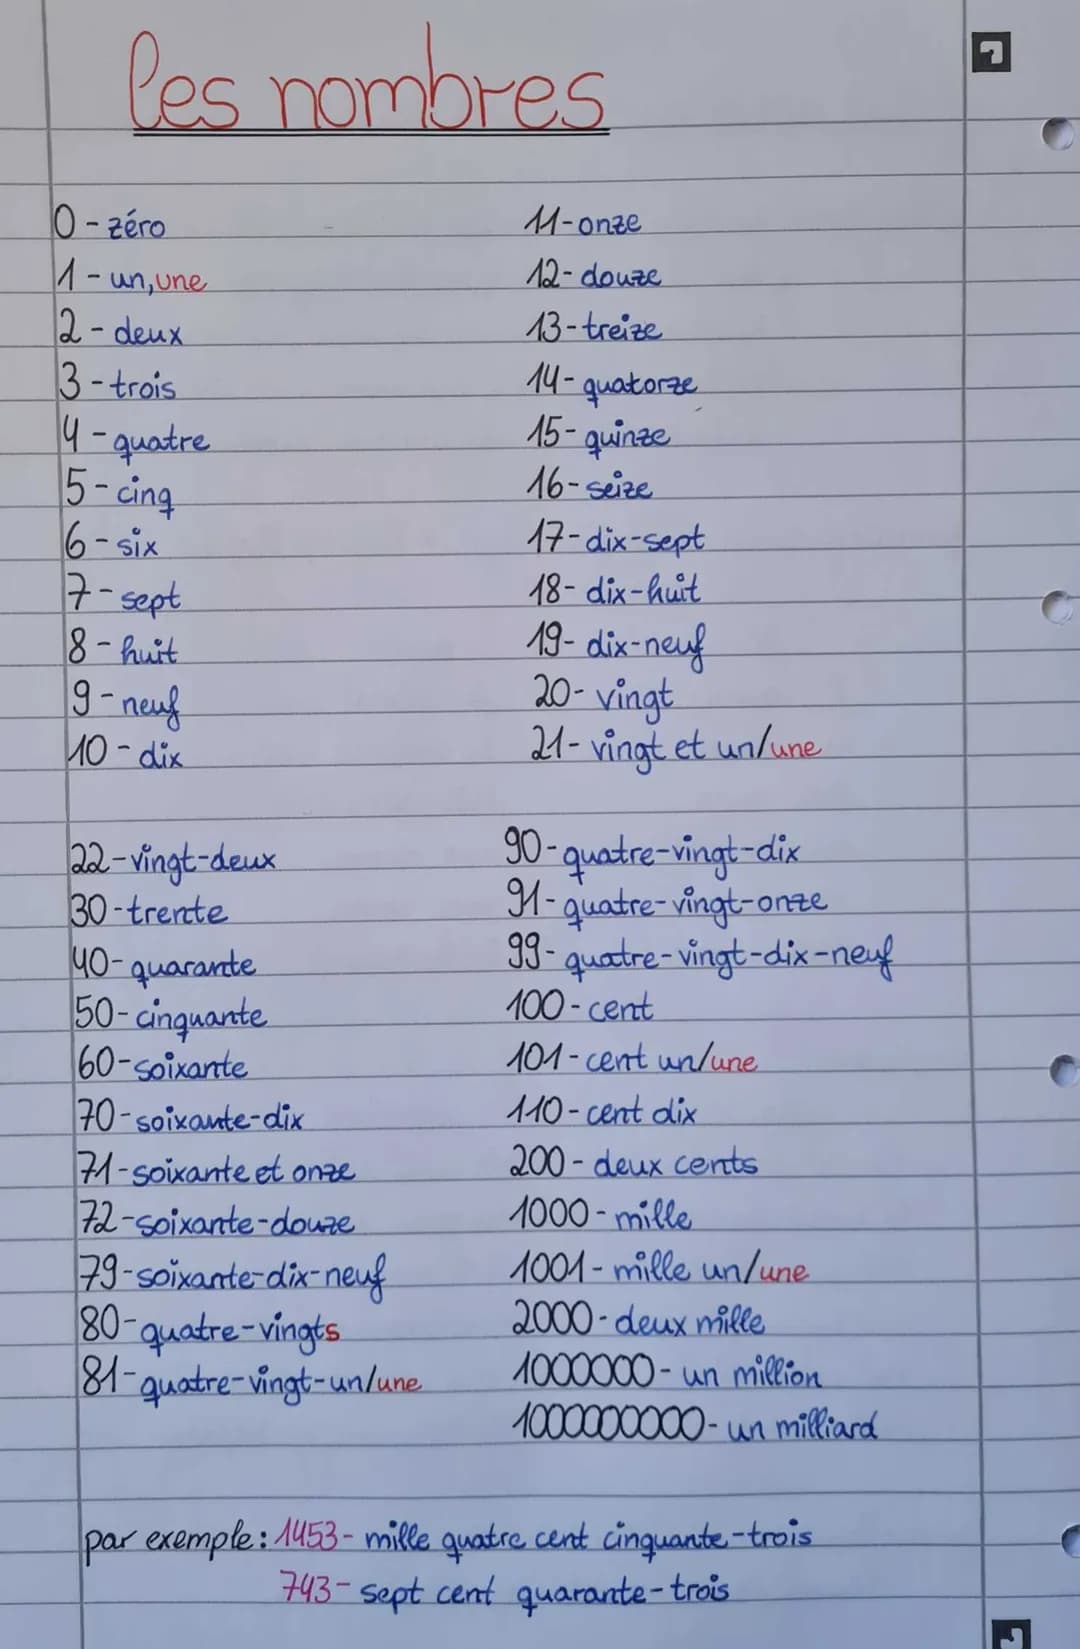 les nombres
0 - zéro
1 - un, une
2 - deux
3 - trois
4 - quatre
5 - cinq
6 - six
7 - sept
8 - huit
9 - neuf
10 - dix
11 - onze
12 - douze
13 - treize
14 - quatorze
15 - quinze
16 - seize
17 - dix-sept
18 - dix-huit
19 - dix-neuf
20 - vingt
21 - vingt et un/une
22 - vingt-deux
30 - trente
40 - quarante
50 - cinquante
60 - soixante
70 - soixante-dix
71 - soixante et onze
72 - soixante-douze
79 - soixante-dix-neuf
80 - quatre-vingts
81 - quatre-vingt-un/une
90 - quatre-vingt-dix
91 - quatre-vingt-onze
99 - quatre-vingt-dix-neuf
100 - cent
101 - cent un/une
110 - cent dix
200 - deux cents
1000 - mille
1001 - mille un/une
2000 - deux mille
1000000 - un million
1000000000 - un milliard
par exemple: 1453 - mille quatre cent cinquante-trois
743 - sept cent quarante-trois